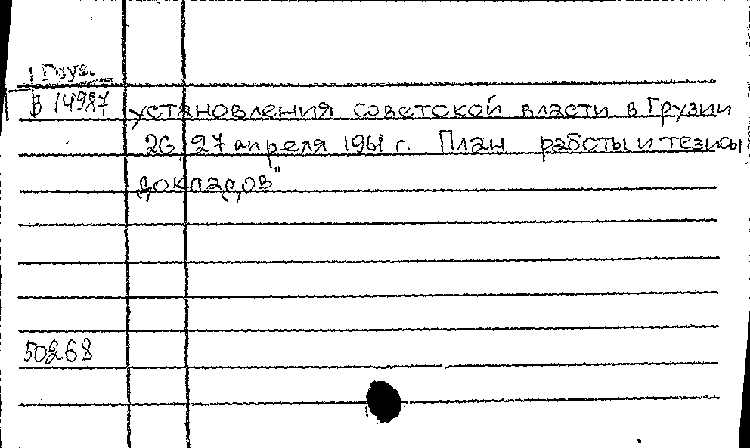 1 Груз.
В 14987
установления советской власти в Грузии
26, 27 апреля 1961 г. План работы и тезисы
докладов"
50268